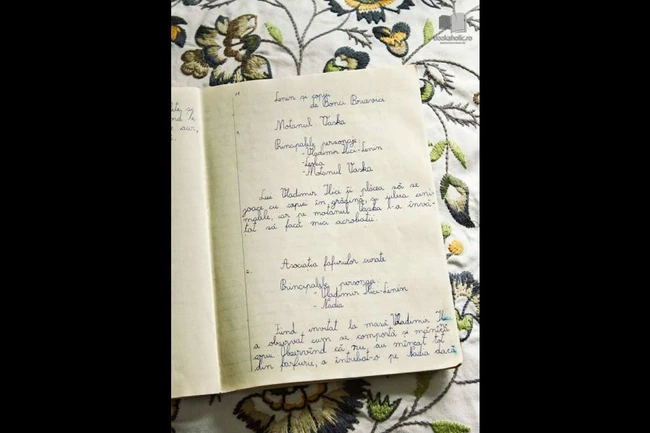 bookaholic.ro
Lenin și copiii
de Bonci Bruevici
Motanul Vaska
1.
Principalele personaje
-Vladimir Ilici-Lenin
-Motanul Vaska
Lui Vladimir Ilici îi plăcea să se
joace cu copiii în grădină, iubea ani-
malele, iar pe motanul Vaska l-a învă-
țat să facă mici acrobații
2.
Asociația farfuriilor curate
Principalele personaje
- Vladimir Ilici-Lenin
- Nadia
Fiind invitat la masă, Vladimir
a observat cum se comportă și mănâncă
copiii. Observînd că nu au mîncat tot
din farfurie, a întrebat-o pe Nadia dacă